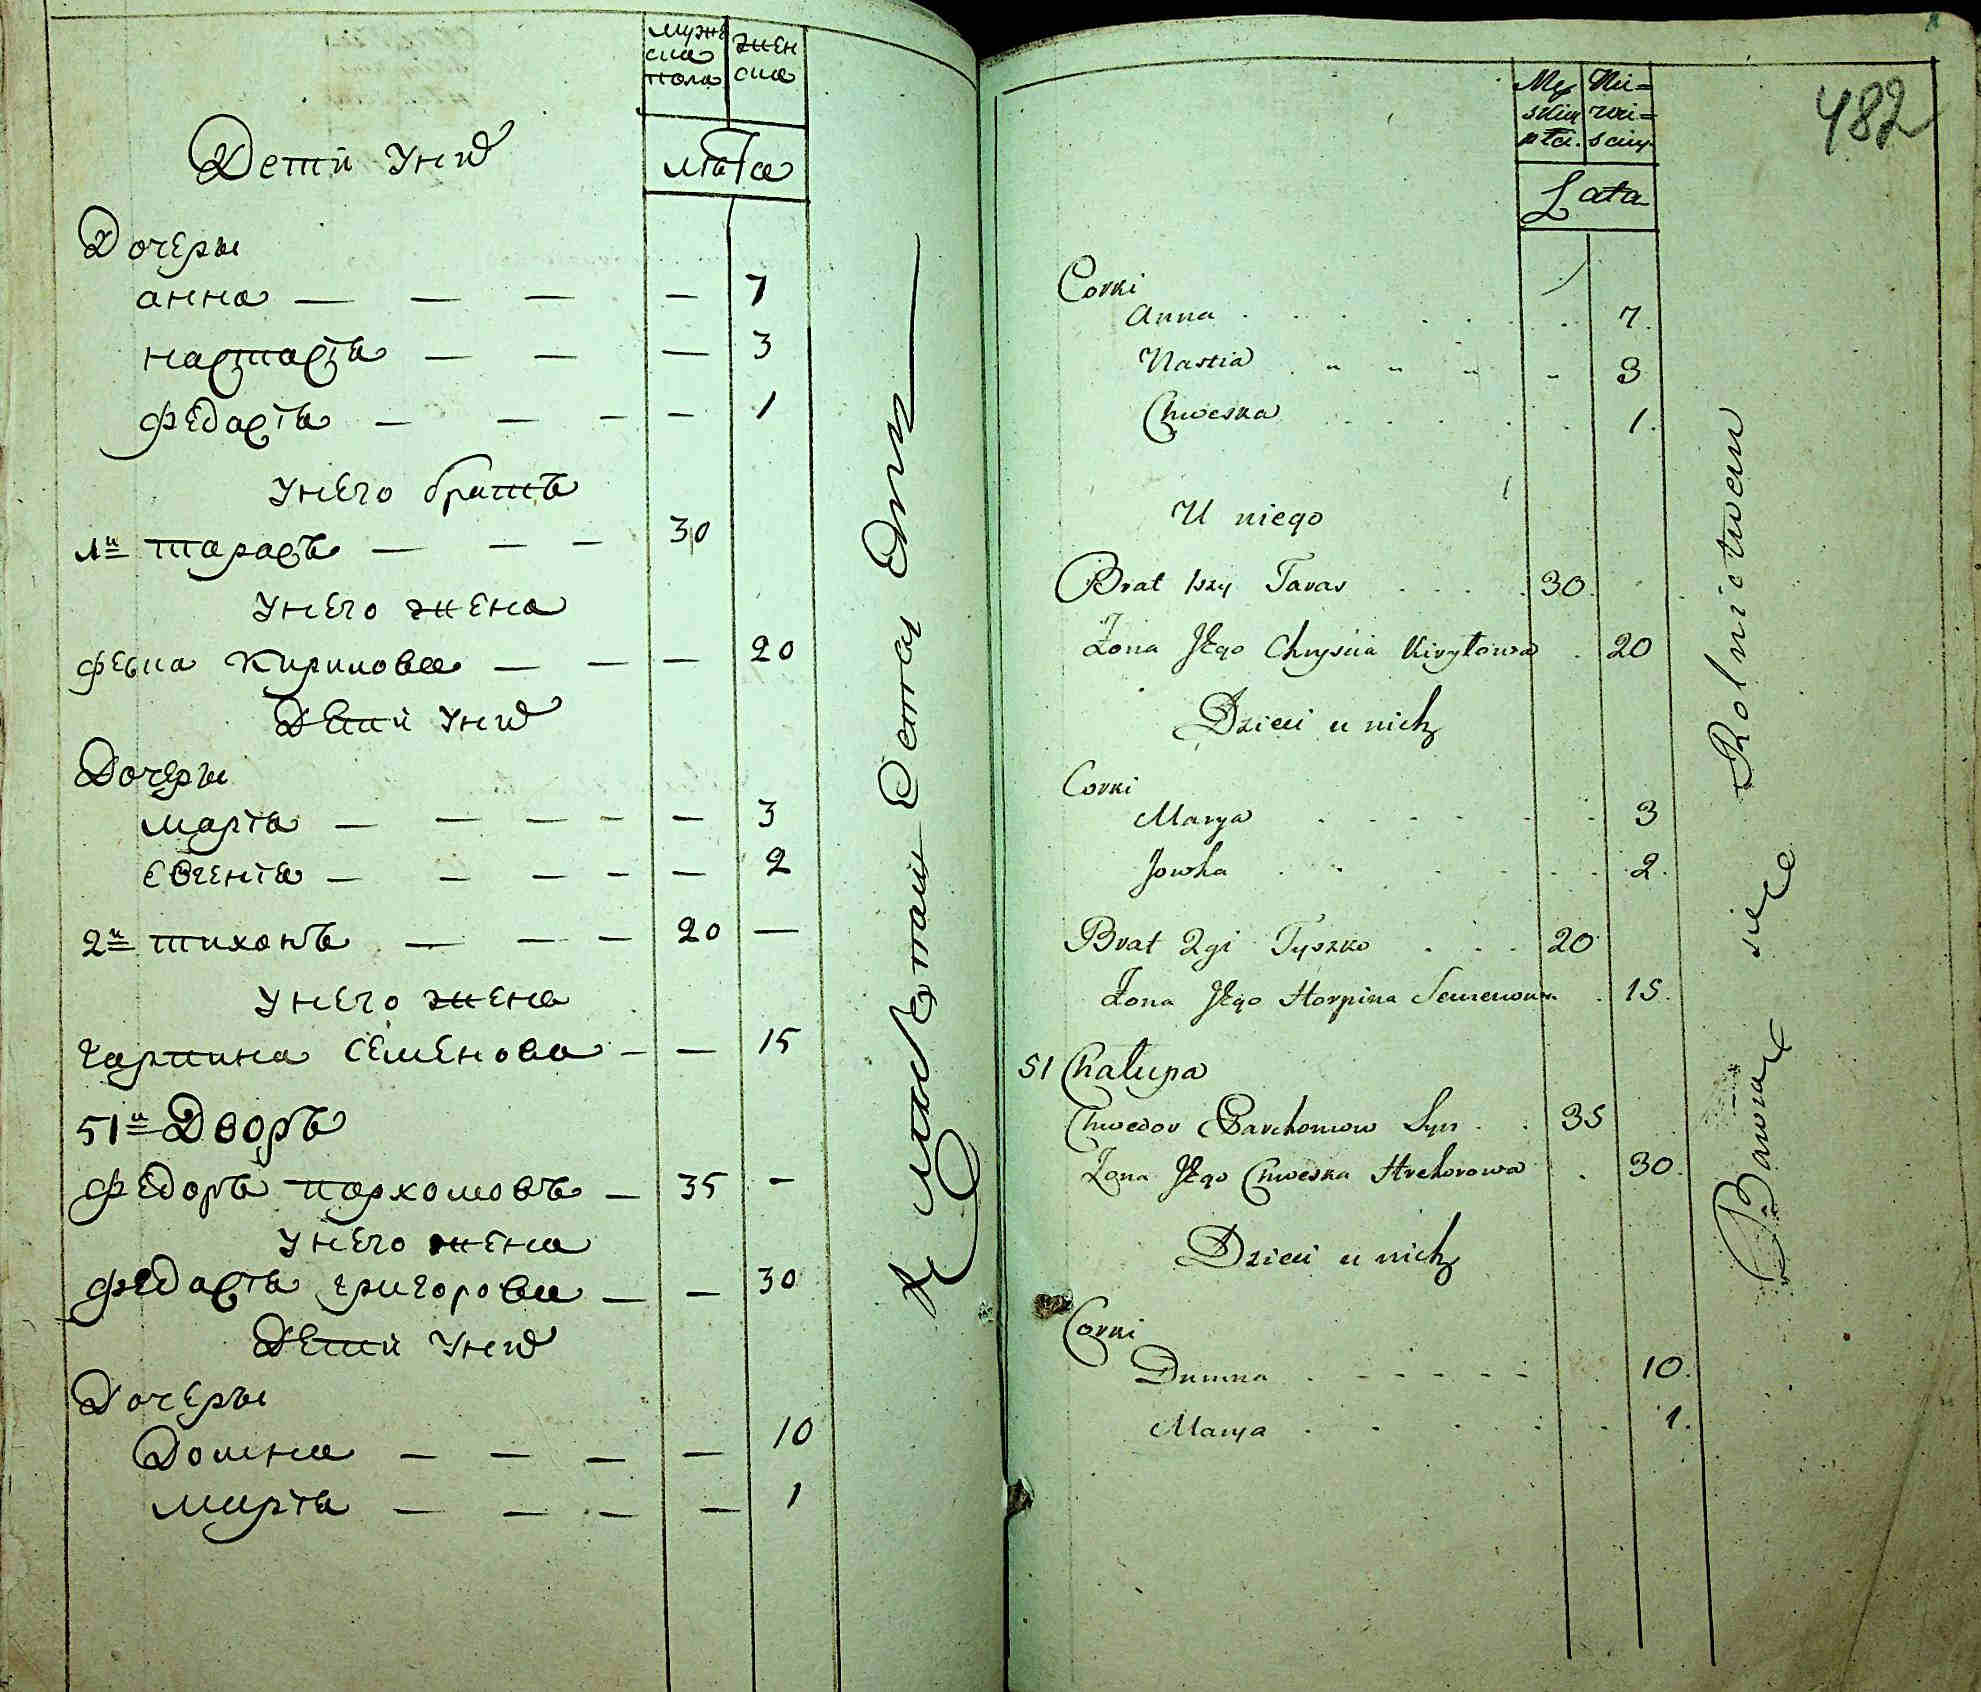 мужеска пола
женска
лѣта
Детѝ У них
Дочеры
анна — — — — 7
настасıя — — — 3
федосıя — — — — — 1
У него братъ
1й тарасъ — — — 30
У него жена
Кирилова — — — 20
Детѝ У них
Дочеры
марıя — — — — — 3
Евгенıя — — — — — 2
2й тихонъ — — — 20 —
У него жена
гарпина Семенова — — 15
51й Дворъ
Федоръ пархомовъ — 35 —
У него жена
федосıя григорова — — 30
Детѝ У них
Дочеры
Домна — — — — 10
марıя — — — — 1
482
Męskiey płci
Niewieściey
Lata
Corki
Anna 7.
Nastia 3
Chweska 1.
U niego
Brat 1szy Taras 30.
Żona Jego Chrysia Kiryłowa 20
Dzieci u nich
Corki
Marya 3
Jowha 2.
Brat 2gi Tyszko 20
Żona Jego Horpina Semenowa 15.
51 Chałupa
Chwedor Parchomow Syn 35
Żona Jego Chweska Hrehorowa 30.
Dzieci u nich
Corki
Dumna 10.
Marya 1.
Bawiące sie Rolnictwem